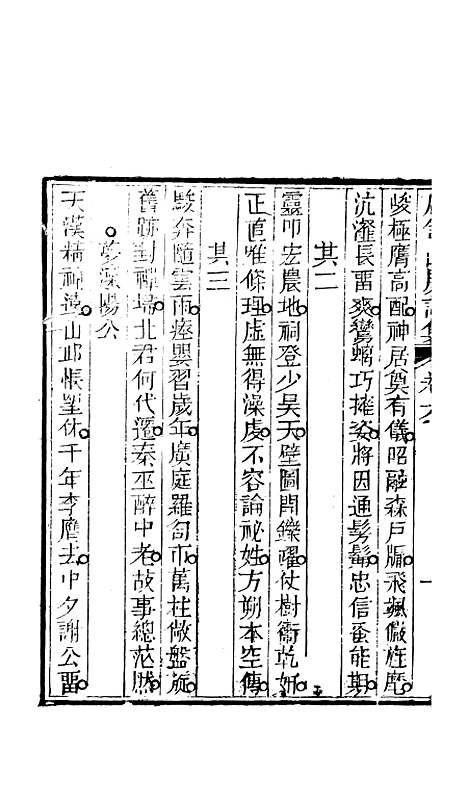 卷六 一
峻極膺高配神居奠有儀昭融森戶牖飛颯儼旌麾
沆瀣長留爽鸞螭巧擁姿將因通髣髴忠信蚤能期
其二
靈叩宏農地祠登少昊天壁圖開鑠曜仗樹衞乾
正直唯條理虛無得澡虔不容論祕姓方朔本空傳
其三
駿奔隨雲雨痊嬰習歲年廣庭羅匄市萬柱敞盤旋
舊跡對禪場北君何代遷秦巫醉中老故事總茫然
陽公
天漢精神 山邱悵望休千年李膺去中夕謝公留